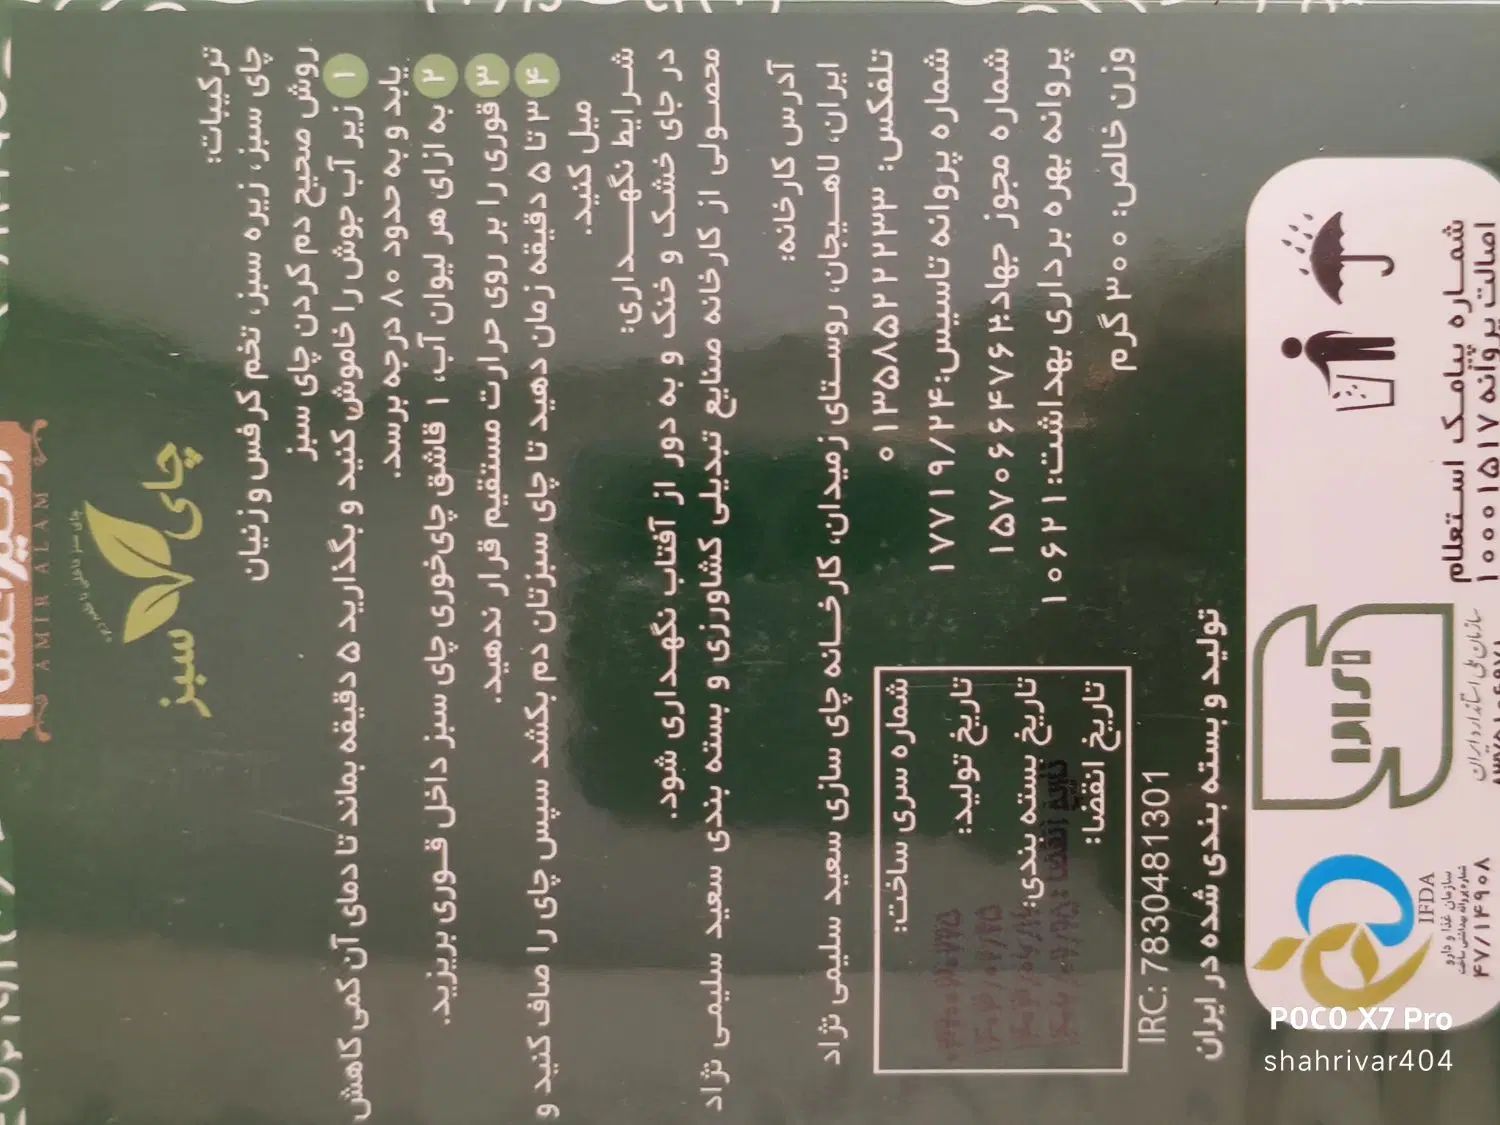 AMIR ALAM
چای سبز
ترکیبات:
چای سبز، زیره سبز، تخم کرفس و زنیان
روش صحیح دم کردن چای سبز
۱ زیر آب جوش را خاموش کنید و بگذارید ۵ دقیقه بماند تا دمای آن کمی کاهش
یابد و به حدود ۸۰ درجه برسد.
۲ به ازای هر لیوان آب، ۱ قاشق چای‌خوری چای سبز داخل قوری بریزید.
۳ قوری را بر روی حرارت مستقیم قرار ندهید.
۴ ۳ تا ۵ دقیقه زمان دهید تا چای سبزتان دم بکشد سپس چای را صاف کنید و
میل کنید.
شرایط نگهداری:
در جای خشک و خنک و به دور از آفتاب نگهداری شود.
محصولی از کارخانه صنایع تبدیلی کشاورزی و بسته بندی سعید سلیمی نژاد
آدرس کارخانه:
ایران، لاهیجان، روستای زمیدان، کارخانه چای سازی سعید سلیمی نژاد
تلفکس: ۰۱۳۵۸۵۲۲۲۳۳
شماره پروانه تاسیس: ۱۷۷۱۹/۲۴
شماره مجوز جهاد: ۱۵۷۰۶۶۴۷۶۲
پروانه بهره برداری بهداشت: ۱۰۶۲۱
وزن خالص: ۳۰۰ گرم
شماره سری ساخت:
تاریخ تولید:
تاریخ بسته بندی:
تاریخ انقضا:
IRC: 7830481301
تولید و بسته بندی شده در ایران
IFDA
سازمان غذا و دارو
شماره پروانه بهداشتی ساخت
۴۷/۱۴۹۰۸
سازمان ملی استاندارد ایران
شماره پیامک استعلام
اصالت پروانه ۱۰۰۰۱۵۱۷
POCO X7 Pro
shahrivar404